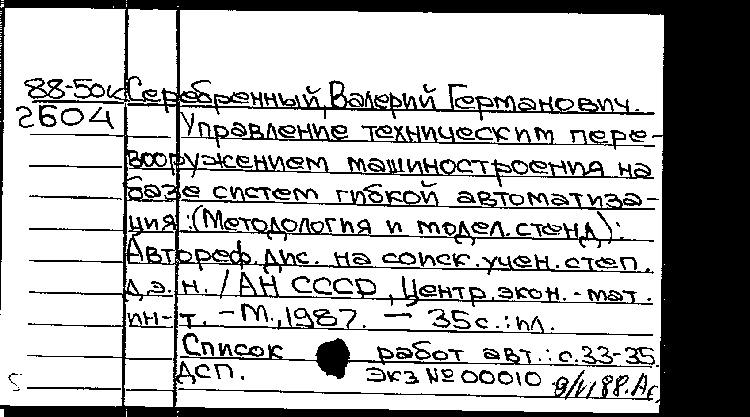 88-50к Серебренный, Валерий Германович.
2604 Управление техническим пере-
вооружением машиностроения на
базе систем гибкой автоматиза-
ция: (Методология и модел. стенд):
Автореф. дис. на соиск. учен. степ.
д.э.н. / АН СССР, Центр. экон.-мат.
ин-т. - М., 1987. — 35 с.: ил.
Список работ авт.: с. 33-35.
ДСП. Экз № 00010